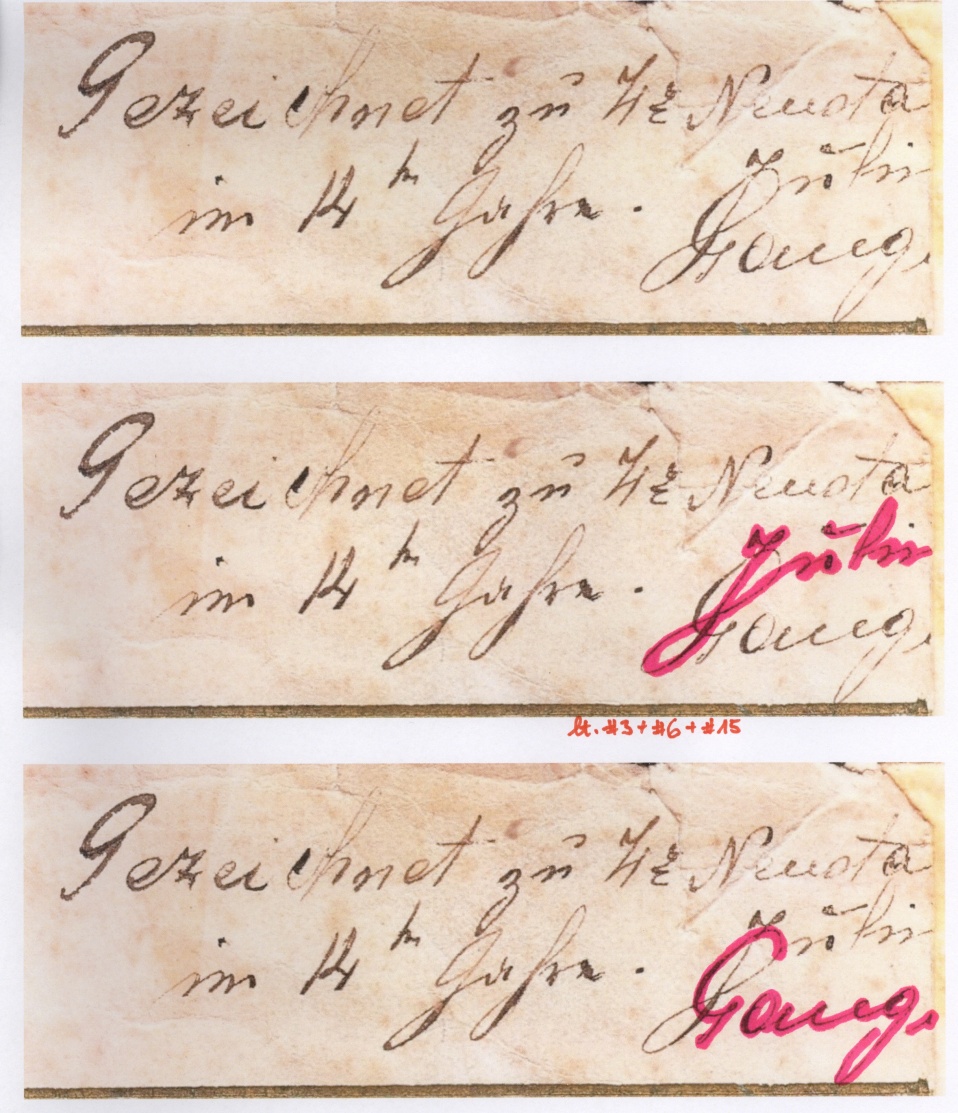 Gezeichnet zu Hz Neusta
im 14 tn Jahre. Juli
Lang.
Gezeichnet zu Hz Neusta
im 14 tn Jahre. Juli
Lang.
lt. #3 + #6 + #15
Gezeichnet zu Hz Neusta
im 14 tn Jahre. Juli
Lang.